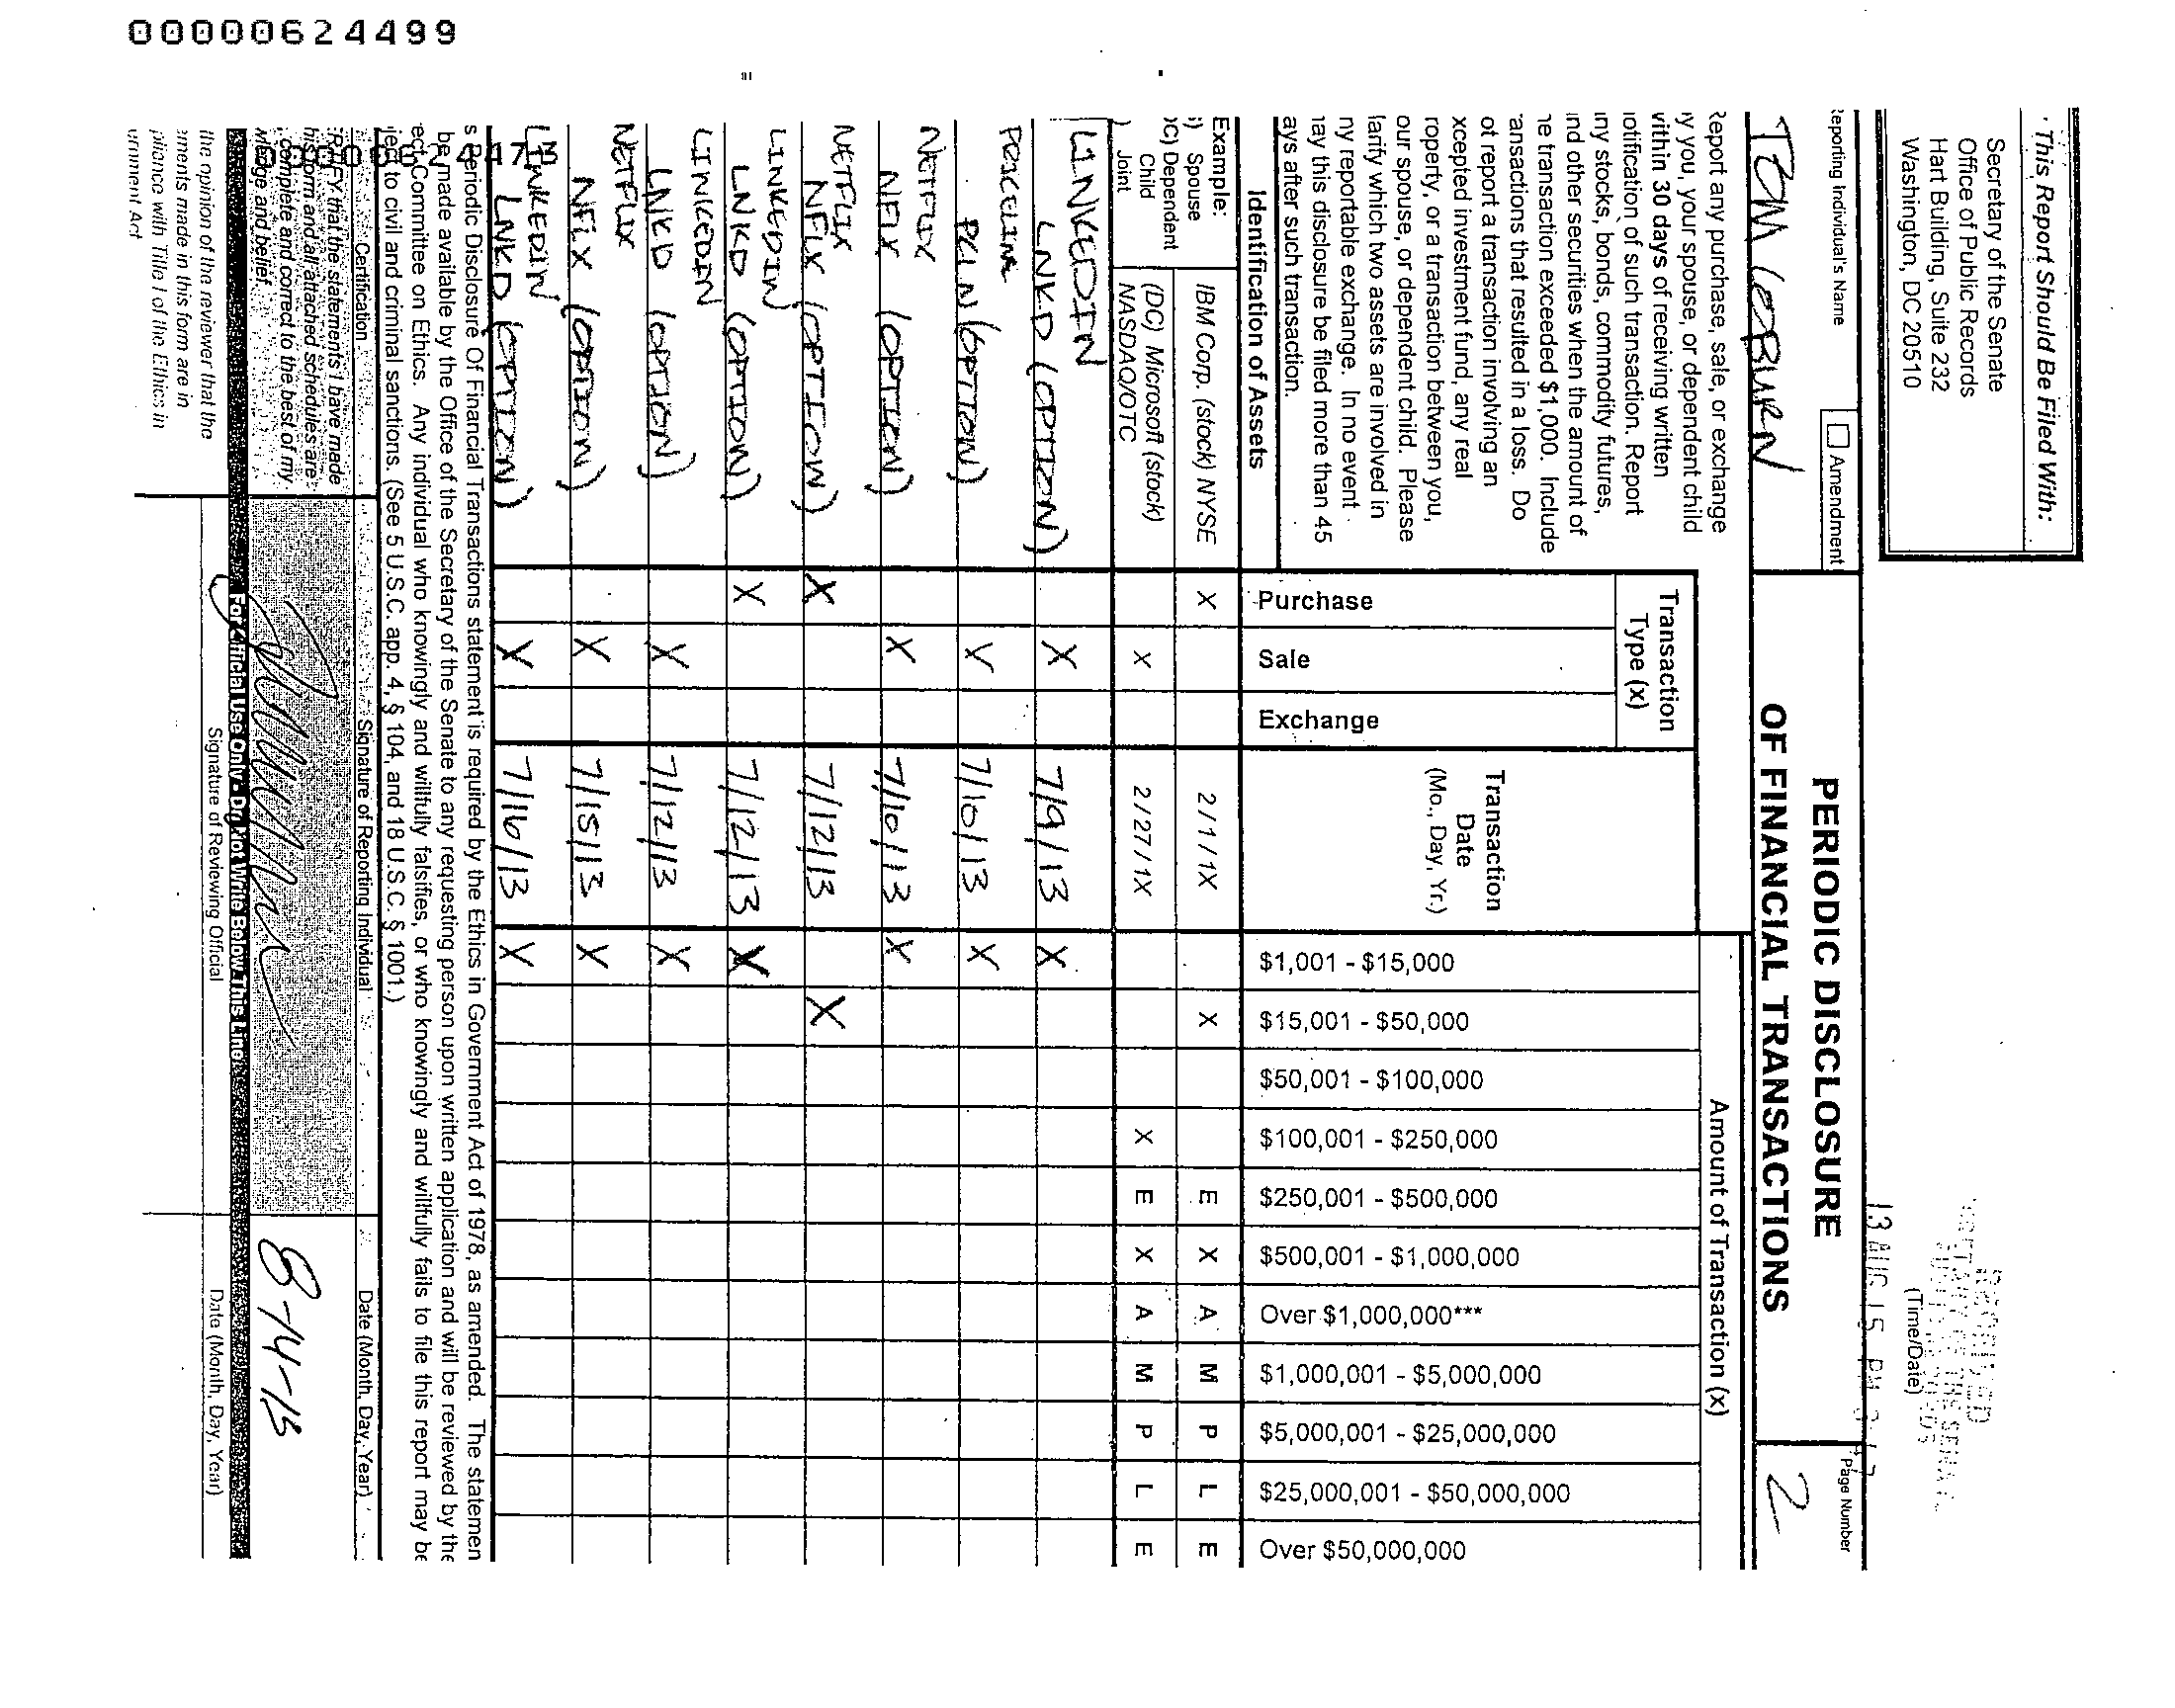 00000624499
This Report Should Be Filed With:
Secretary of the Senate
Office of Public Records
Hart Building, Suite 232
Washington, DC 20510
(Time/Date)
13 AUG 15 PM 3:17
Reporting Individual's Name
Amendment
TOM COBURN
PERIODIC DISCLOSURE
OF FINANCIAL TRANSACTIONS
Page Number
2
Report any purchase, sale, or exchange
by you, your spouse, or dependent child
within 30 days of receiving written
notification of such transaction. Report
any stocks, bonds, commodity futures,
and other securities when the amount of
he transaction exceeded $1,000. Include
ransactions that resulted in a loss. Do
ot report a transaction involving an
xcepted investment fund, any real
roperty, or a transaction between you,
our spouse, or dependent child. Please
larify which two assets are involved in
ny reportable exchange. In no event
nay this disclosure be filed more than 45
ays after such transaction.
Transaction
Type (x)
Purchase
Sale
Exchange
Transaction
Date
(Mo., Day, Yr.)
Amount of Transaction (x)
$1,001 - $15,000
$15,001 - $50,000
$50,001 - $100,000
$100,001 - $250,000
$250,001 - $500,000
$500,001 - $1,000,000
Over $1,000,000***
$1,000,001 - $5,000,000
$5,000,001 - $25,000,000
$25,000,001 - $50,000,000
Over $50,000,000
Identification of Assets
Example:
S) Spouse
DC) Dependent
Child
) Joint
IBM Corp. (stock) NYSE X 2 / 1 / 1X X E X A M P L E
(DC) Microsoft (stock)
NASDAQ/OTC X 2 / 27 / 1X X E X A M P L E
LINKEDIN
LNKD (OPTION) X 7/9/13 X
PRICELINE
PCLN (OPTION) X 7/10/13 X
NETFLIX
NFLX (OPTION) X 7/10/13 X
NETFLIX
NFLX (OPTION) X 7/12/13 X
LINKEDIN
LNKD (OPTION) X 7/12/13 X
LINKEDIN
LNKD (OPTION) X 7/12/13 X
NETFLIX
NFLX (OPTION) X 7/15/13 X
LINKEDIN
LNKD (OPTION) X 7/16/13 X
s Periodic Disclosure Of Financial Transactions statement is required by the Ethics in Government Act of 1978, as amended. The statemen
be made available by the Office of the Secretary of the Senate to any requesting person upon written application and will be reviewed by the
ect Committee on Ethics. Any individual who knowingly and willfully falsifies, or who knowingly and willfully fails to file this report may be
ject to civil and criminal sanctions. (See 5 U.S.C. app. 4, § 104, and 18 U.S.C. § 1001.)
Certification
Signature of Reporting Individual
Date (Month, Day, Year)
RTIFY that the statements I have made
his form and all attached schedules are
complete and correct to the best of my
wledge and belief.
8-14-13
For Official Use Only - Do Not Write Below This Line
the opinion of the reviewer that the
ements made in this form are in
pliance with Title I of the Ethics in
ernment Act
Signature of Reviewing Official
Date (Month, Day, Year)